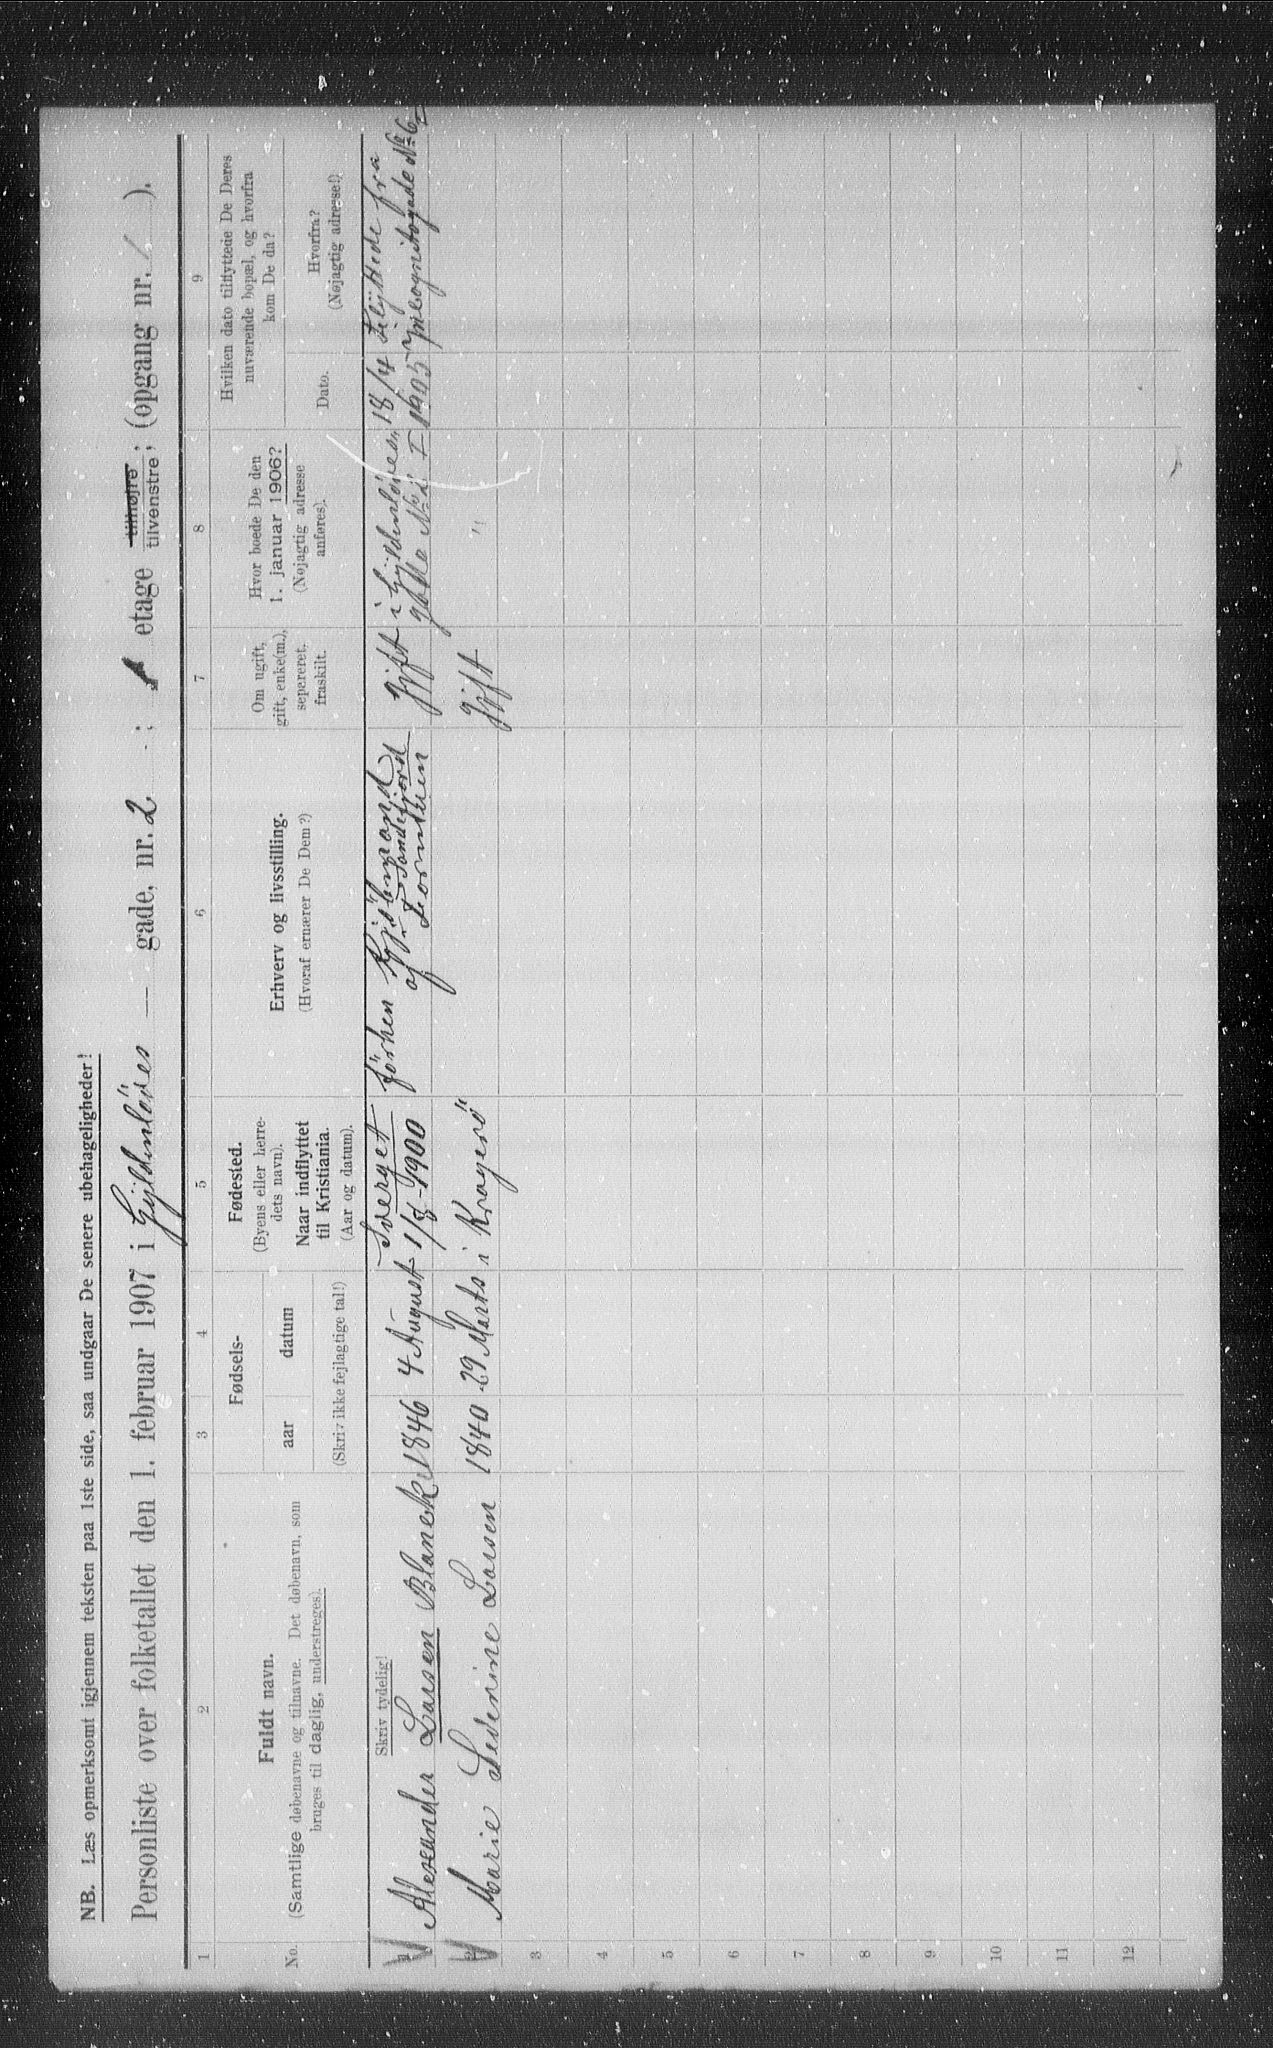 NB. Læs opmerksomt igjennem teksten paa 1ste side, saa undgaar De senere ubehageligheder!
Personliste over folketallet den 1. februar 1907 i Gyldenløves — gade, nr. 2 ; etage tilhøjre tilvenstre; (opgang nr. ).
1 2 3 4 5 6 7 8 9
No.
Fuldt navn.
(Samtlige døbenavne og tilnavne. Det døbenavn, som
bruges til daglig, understreges).
Fødsels-
aar datum
(Skriv ikke fejlagtige tal!)
Fødested.
(Byens eller herre-
dets navn).
Naar indflyttet
til Kristiania.
(Aar og datum).
Erhverv og livsstilling.
(Hvoraf ernærer De Dem?)
Om ugift,
gift, enke(m.),
sepereret,
fraskilt.
Hvor boede De den
1. januar 1906?
(Nøjagtig adresse
anføres).
Hvilken dato tilflyttede De Deres
nuværende bopæl, og hvorfra
kom De da?
Dato.
Hvorfra?
(Nøjagtig adresse!)
Skriv tydelig!
1 Alexander Larsen 1846 4 August Sverget 1/8-1900 förhen Kjöbmand Gift i Gyldenlöves 18/4 tilflyttede fra
af Sandefjord
Formuen
gade No 2 I 1905 No 6
2 Marie Severine Larsen 1840 29 Marts i Kragerö Gift "
3
4
5
6
7
8
9
10
11
12